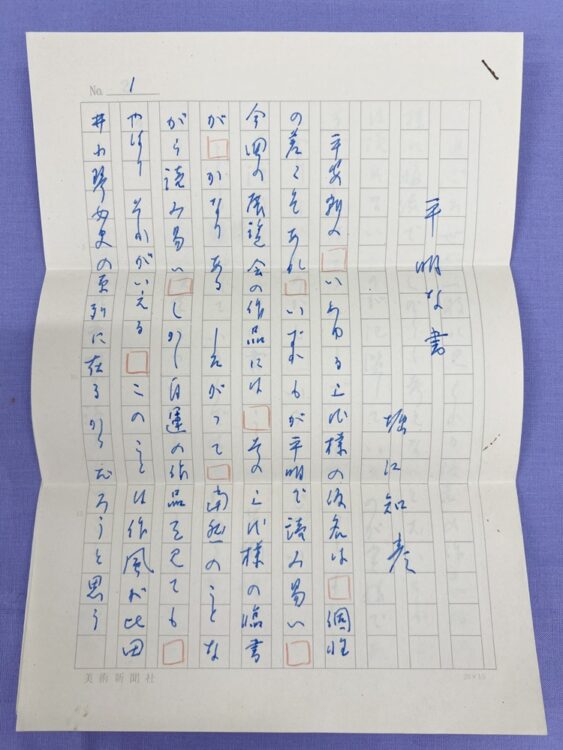 No. 1
平明な書
堀江知彦
平安朝の いわゆる上代様の仮名は 個性
の差こそあれ いずれもが平明で読み易い
今回の展覧会の作品には その上代様の臨書
が かなりある したがって 当然のことな
がら読み易い しかし自運の作品を見ても
やはり それがいえる このことは作風が比田
井小琴女史の系列に在るからだろうと思う
美術新聞社
20×15